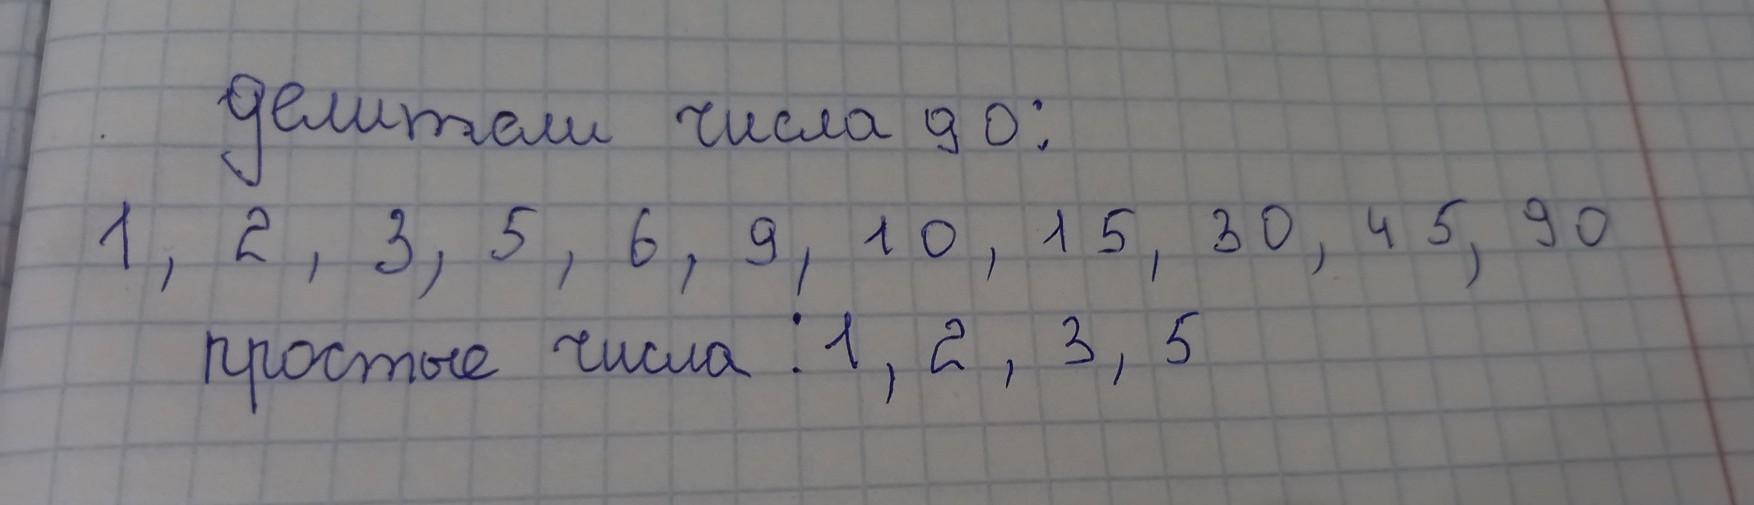 делители числа 90:
1, 2, 3, 5, 6, 9, 10, 15, 30, 45, 90
простые числа : 1, 2, 3, 5